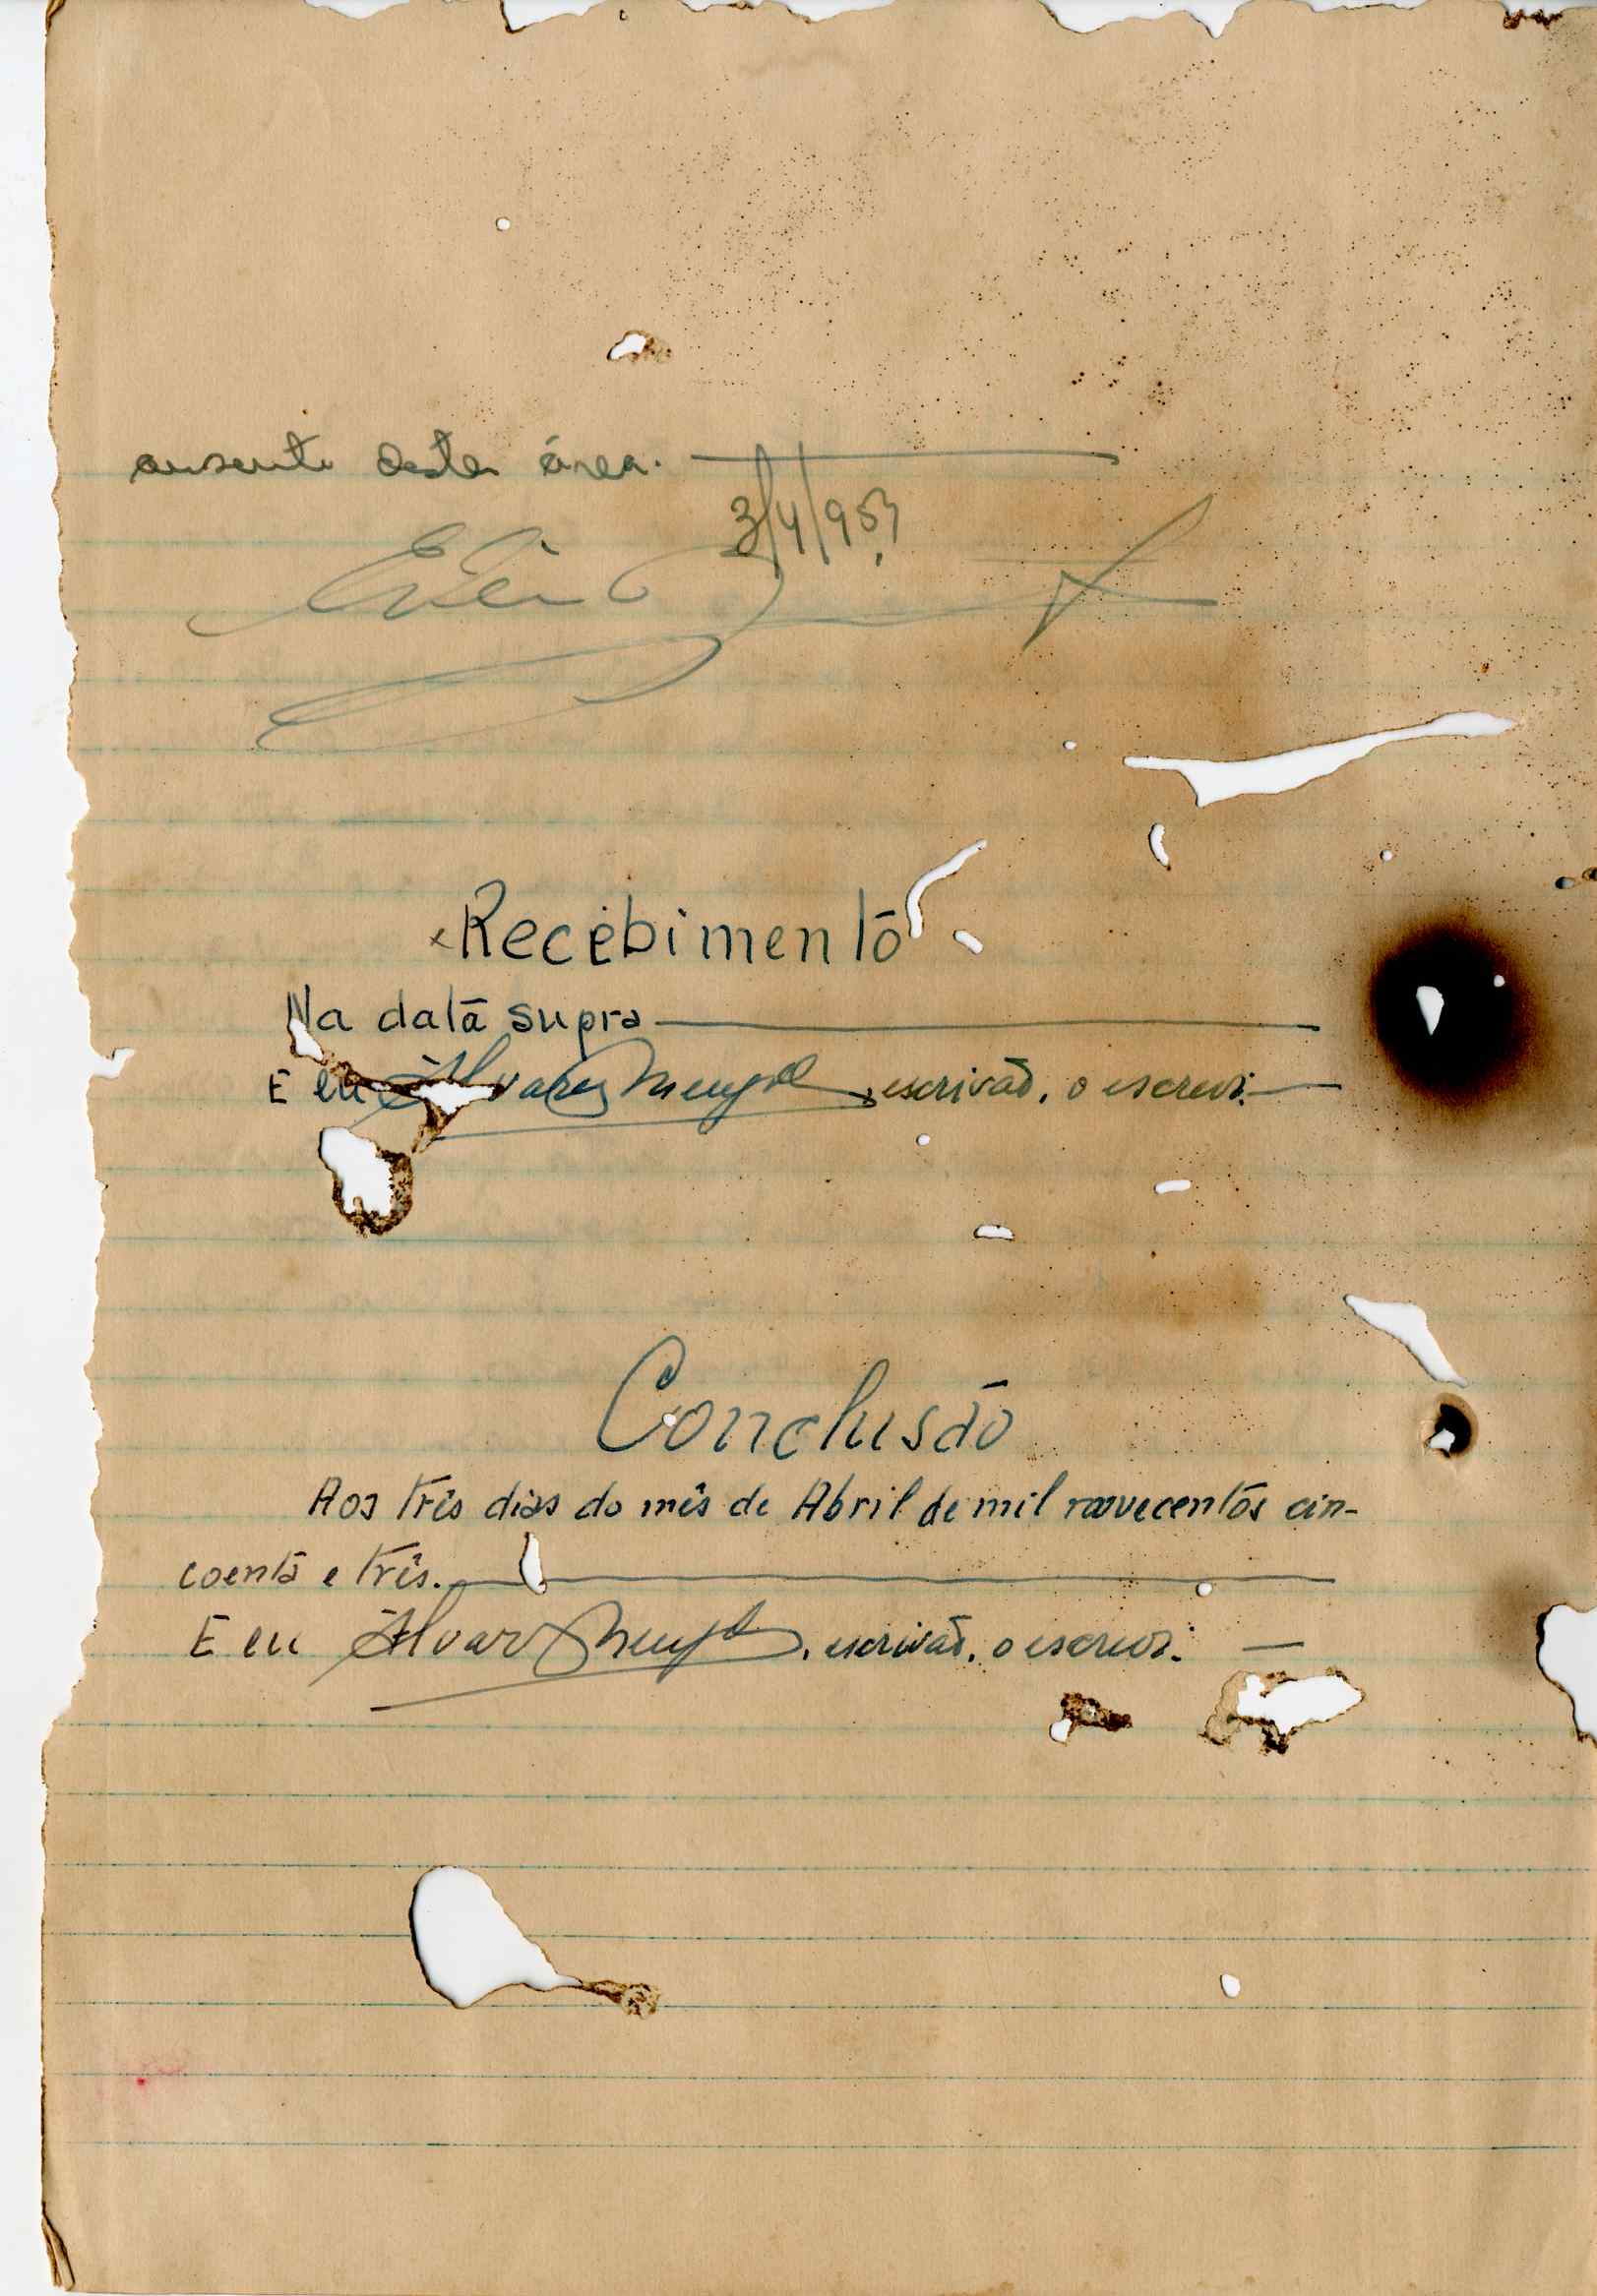 ausente desta área.
3/4/953
Recebimento
Na data supra
E eu Alvaro , escrivão, o escrevi.
Conclusão
Aos três dias do mês de Abril de mil novecentos cin-
coenta e três.
E eu Alvaro , escrivão, o escrevi.